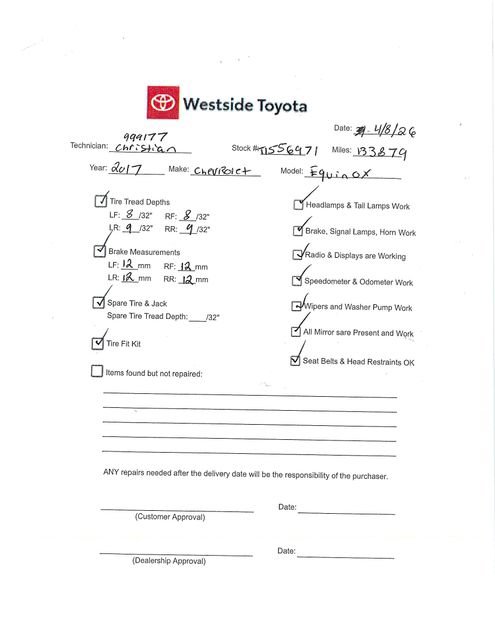 Westside Toyota
Date: 4/8/26
999177
Technician: Christian Stock #: T1556971 Miles: 133879
Year: 2017 Make: Chevrolet Model: Equinox
Tire Tread Depths
LF: 8 /32" RF: 8 /32"
LR: 9 /32" RR: 9 /32"
Brake Measurements
LF: 12 mm RF: 12 mm
LR: 12 mm RR: 12 mm
Spare Tire & Jack
Spare Tire Tread Depth: ____/32"
Tire Fit Kit
Items found but not repaired:
Headlamps & Tail Lamps Work
Brake, Signal Lamps, Horn Work
Radio & Displays are Working
Speedometer & Odometer Work
Wipers and Washer Pump Work
All Mirror sare Present and Work
Seat Belts & Head Restraints OK
ANY repairs needed after the delivery date will be the responsibility of the purchaser.
Date:
(Customer Approval)
Date:
(Dealership Approval)